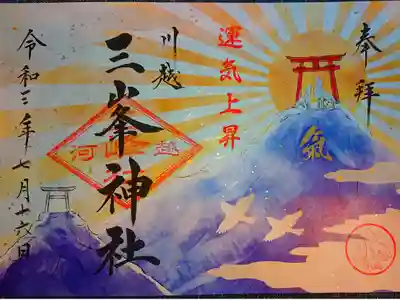 奉拝
氣
運気上昇
川越
三峯神社
河越
令和三年七月十六日